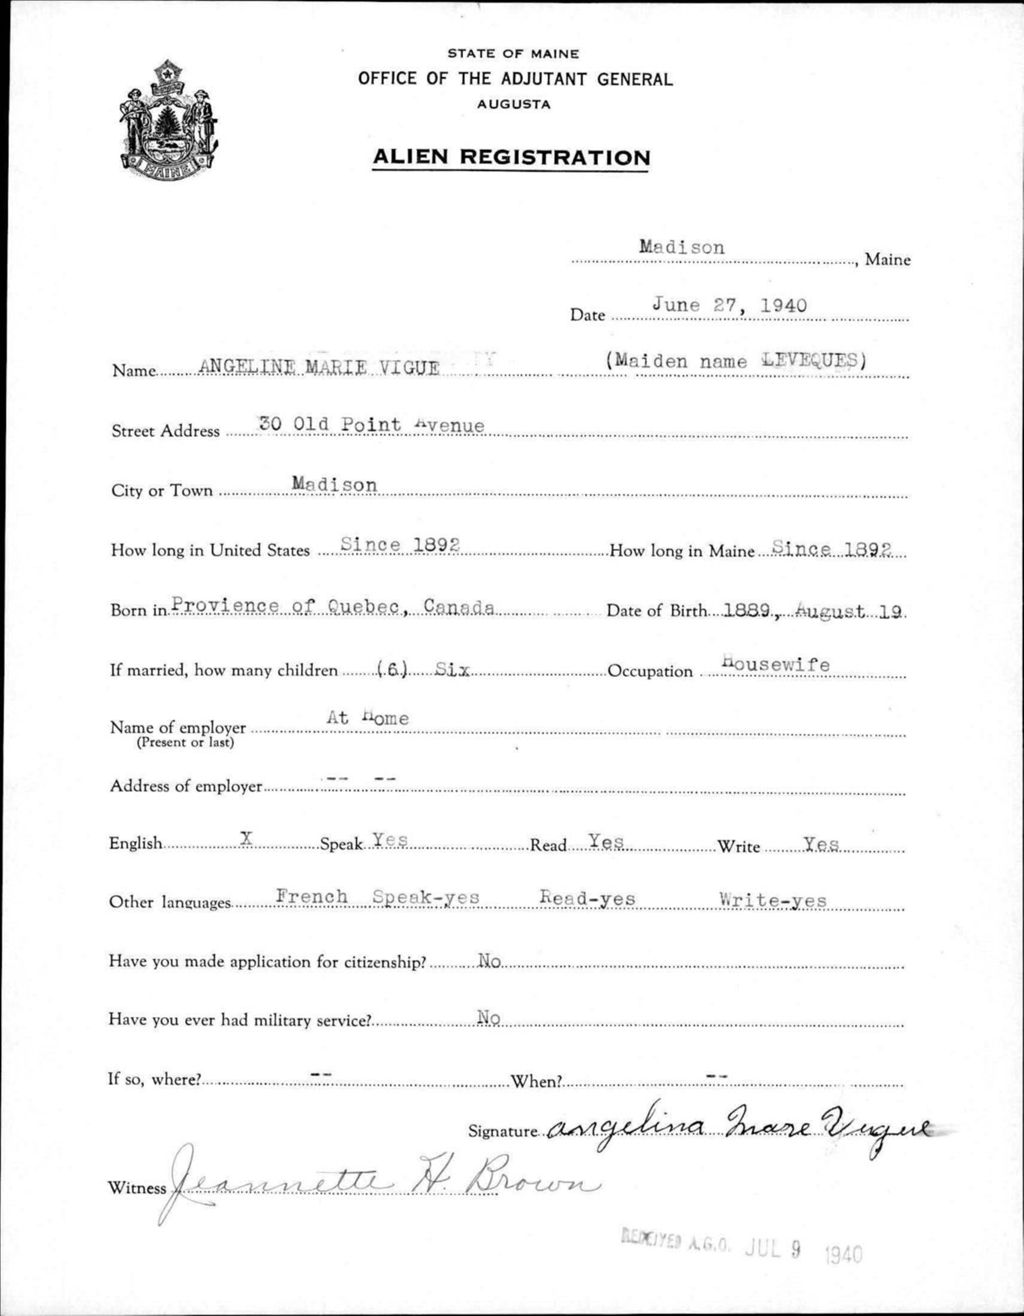 STATE OF MAINE
OFFICE OF THE ADJUTANT GENERAL
AUGUSTA
ALIEN REGISTRATION
MAINE
Madison, Maine
Date June 27, 1940
Name ANGELINE MARIE VIGUE (Maiden name LEVEQUES)
Street Address 30 Old Point Avenue
City or Town Madison
How long in United States Since 1892 How long in Maine Since 1892
Born in Provience of Quebec, Canada Date of Birth 1889, August 19.
If married, how many children (6) Six Occupation Housewife
Name of employer At Home
(Present or last)
Address of employer -- --
English X Speak Yes Read Yes Write Yes
Other languages French Speak-yes Read-yes Write-yes
Have you made application for citizenship? No
Have you ever had military service? No
If so, where? -- When? --
Signature Angelina Mare Vigue
Witness Jeannette H. Brown
RECEIVED A.G.O. JUL 9 1940